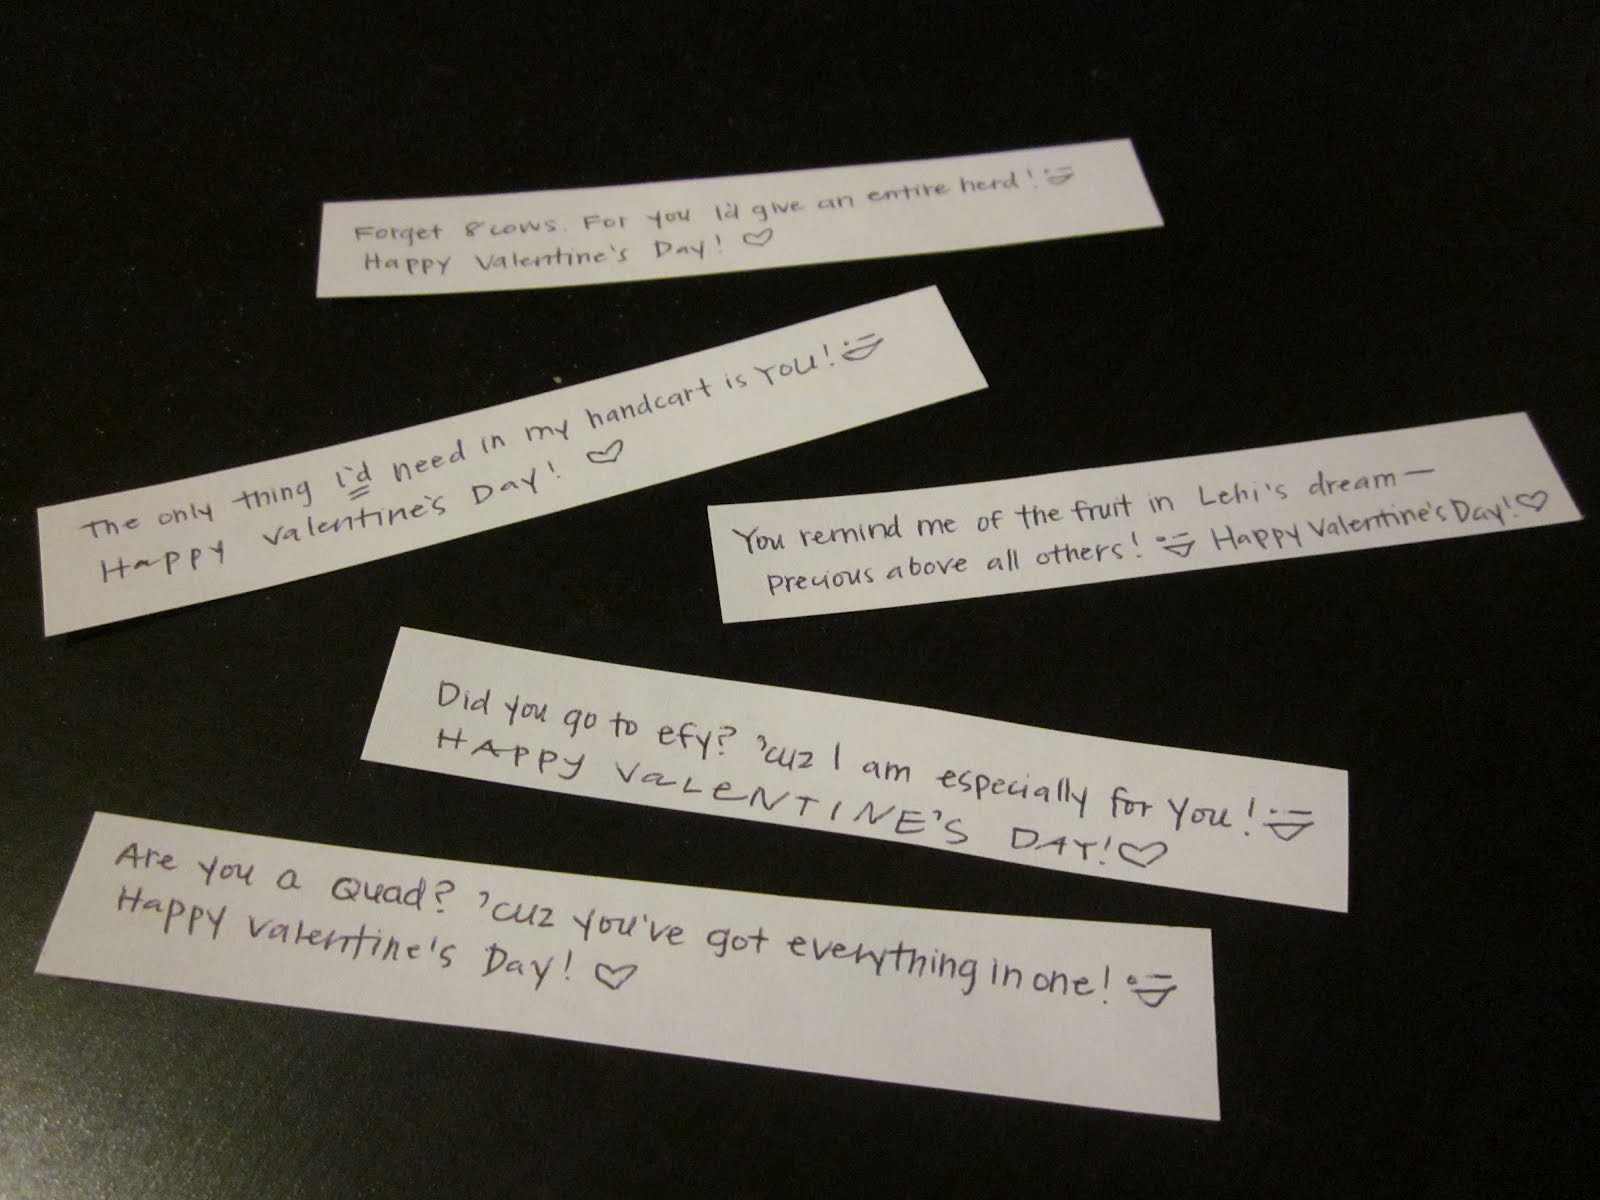 Forget 8 cows. For you I'd give an entire herd!
Happy Valentine's Day! ♡
The only thing I'd need in my handcart is YOU!
Happy Valentine's Day! ♡
You remind me of the fruit in Lehi's dream—
precious above all others! Happy Valentine's Day! ♡
Did you go to efy? 'cuz I am especially for you!
HAPPY VALENTINE'S DAY! ♡
Are you a Quad? 'cuz you've got everything in one!
Happy Valentine's Day! ♡